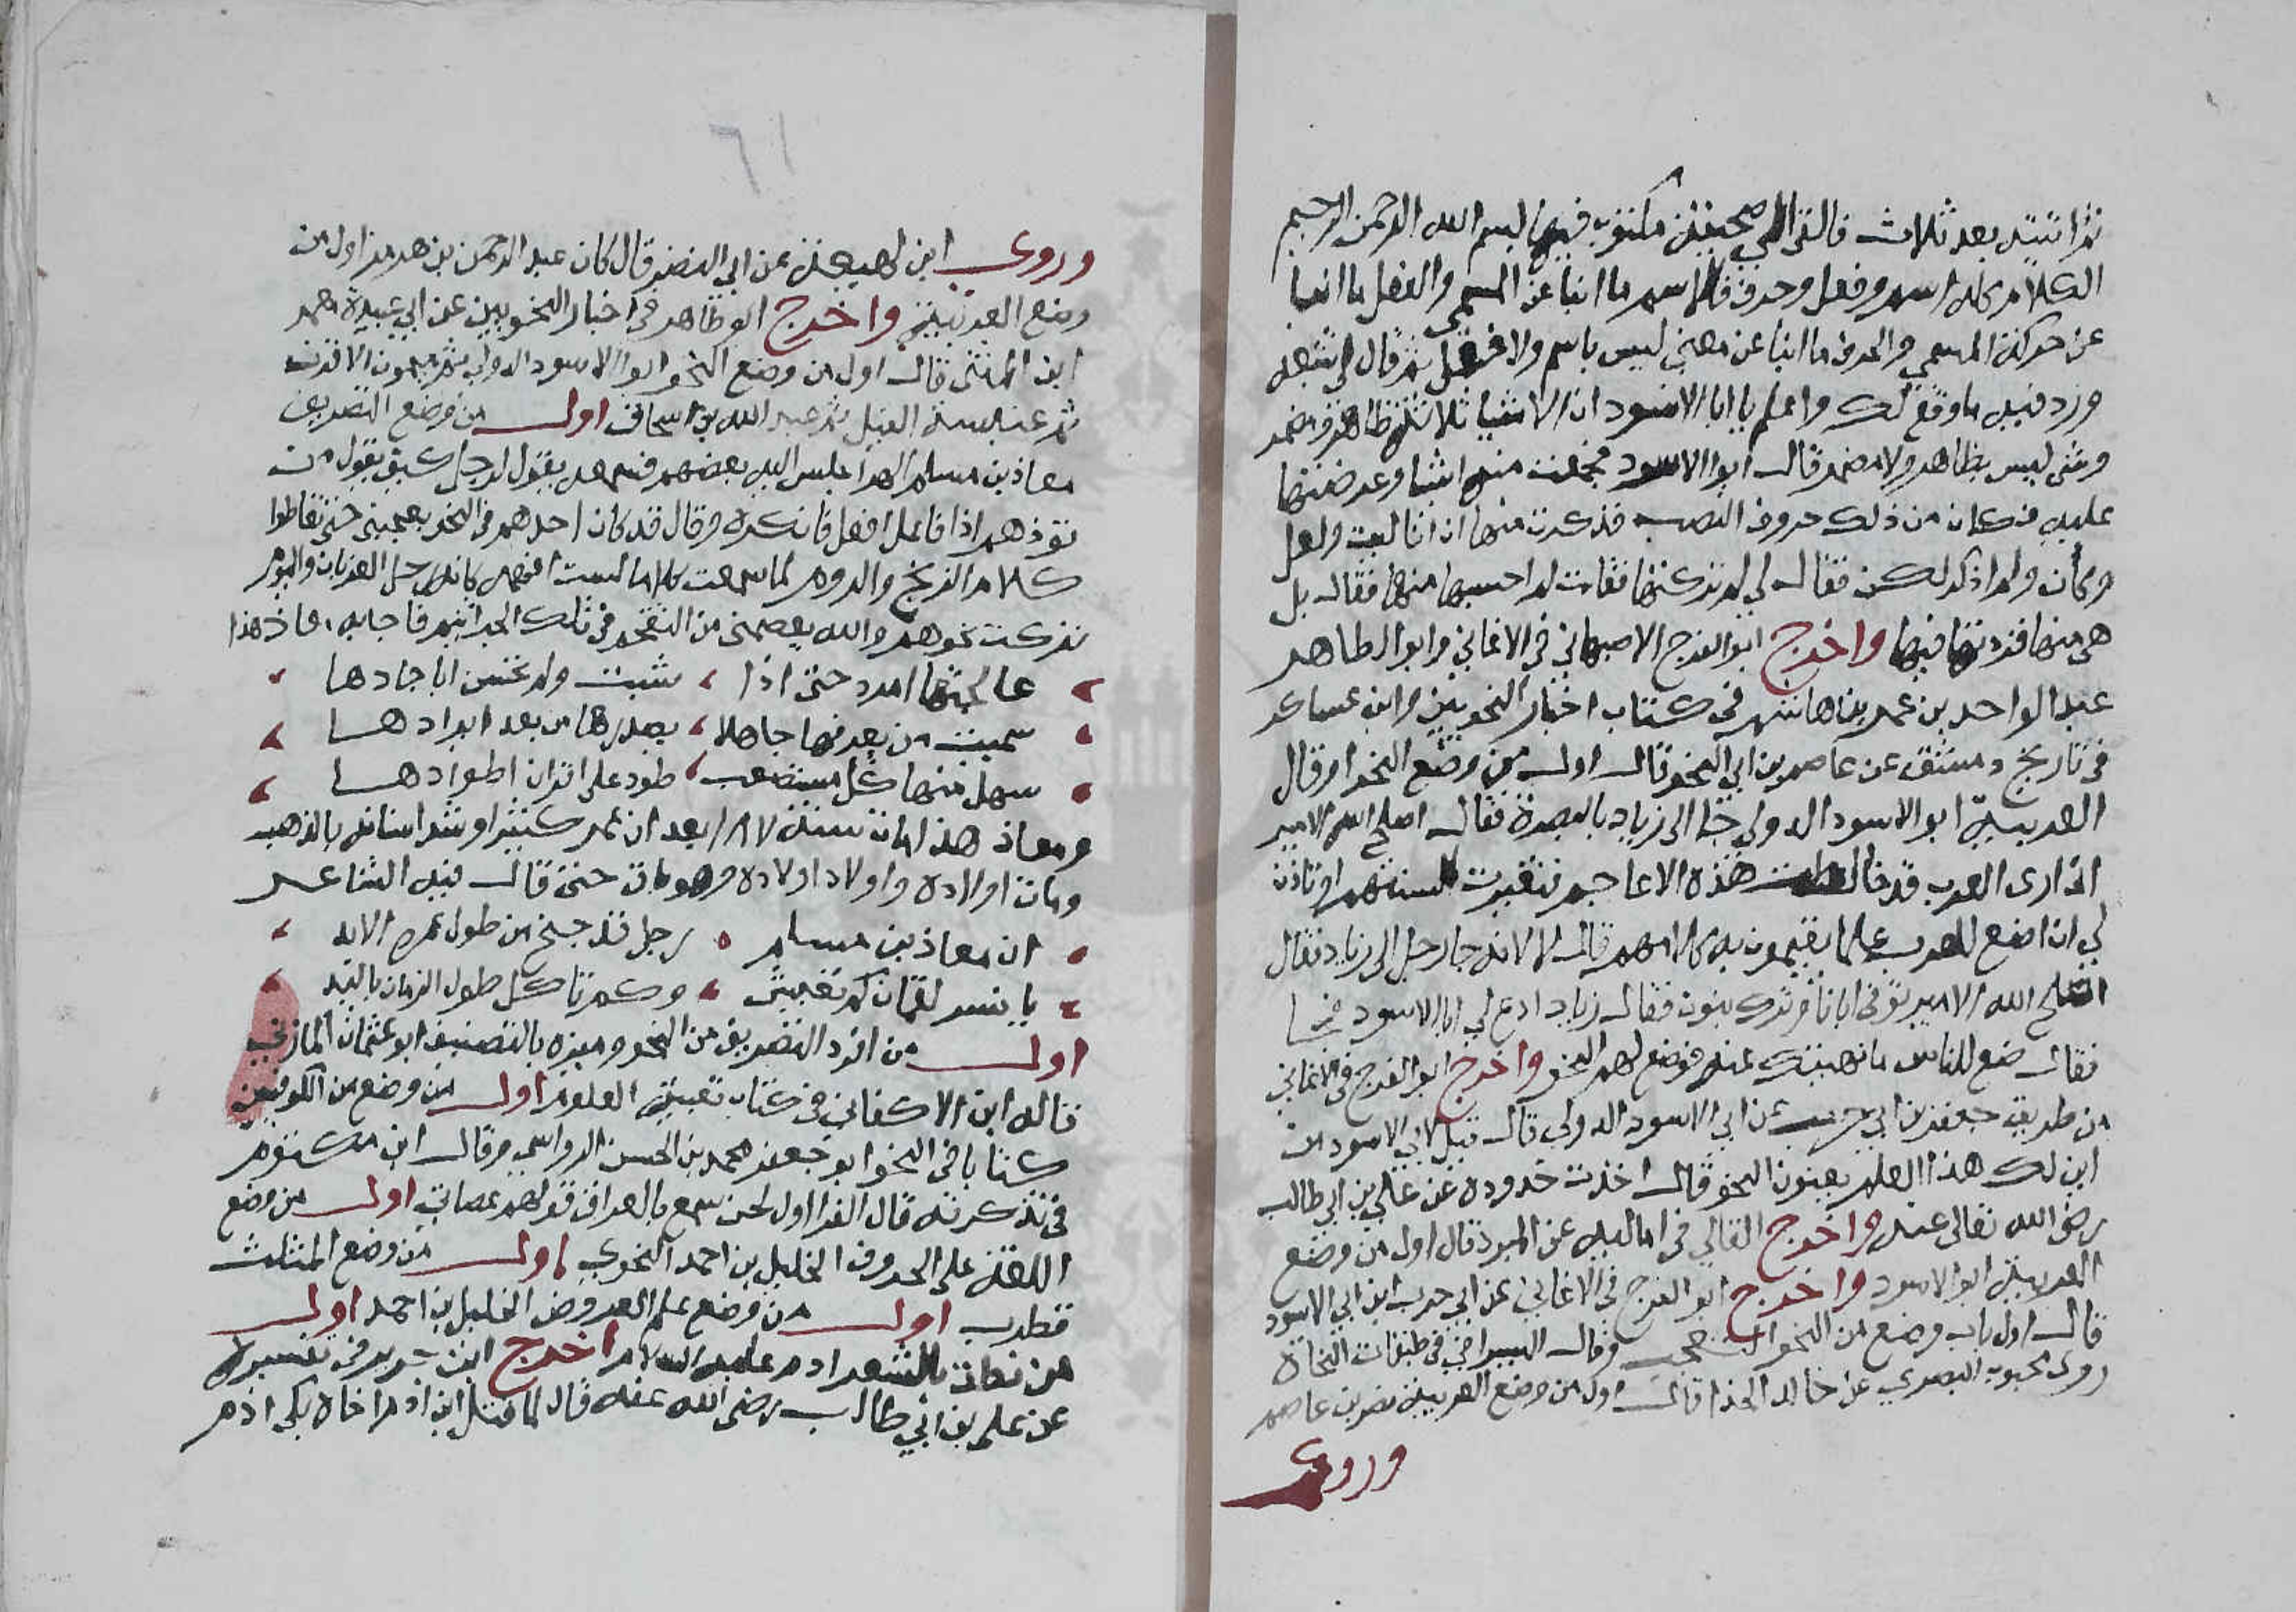 ثم اتيته بعد ثلاث فالقى الي صحيفة مكتوب فيها بسم الله الرحمن الرحيم
الكلام كله اسم وفعل وحرف فالاسم ما انبا عن المسمى والفعل ما انبا
عن حركة المسمي والحرف ما انبا عن معنى ليس باسم ولا فعل ثم قال لي تتبعه
وزد فيه ما وقع لك واعلم يا ابا الاسود ان الاشيا ثلاثة ظاهر ومضمر
وشي ليس بظاهر ولا مضمر قال ابو الاسود فجمعت منه اشيا وعرضتها
عليه فكان من ذلك حروف النصب فذكرت منها ان انا ليت ولعل
وكان ولم اذكر لكن فقال لي لم تركتها فقلت لم احسبها منها فقال بل
هي منها فزدتها فيها واخرج ابو الفرج الاصبهاني في الاغاني وابو الطاهر
عبد الواحد بن عمر بن هاشم في كتاب اخبار النحويين وابن عساكر
في تاريخ دمشق عن عاصم بن ابي النحو قال اول من وضع النحو او قال
العربية ابو الاسود الدولي جا الى زياد بالبصرة فقال اصلح الله الامير
اني ارى العرب قد خالطت هذه الاعاجم فتغيرت السنتهم اوتاذن
لي ان اضع للعرب علما يقيمون به كلامهم قال لا لانه جا رجل الى زياد فقال
اصلح الله الامير توفى ابانا وترك بنون فقال زياد ادع لي ابا الاسود فجا
فقال ضع للناس ما نهيتك عنه فوضع لهم النحو واخرج ابو الفرج في الاغاني
من طريق جعفر بن ابي حرب عن ابي الاسود الدولي قال قيل لابي الاسود من
اين لك هذا العلم يعنون النحو قال اخذت حدوده عن علي بن ابي طالب
رضي الله تعالى عنه واخرج القالي في اماليه عن المبرد قال اول من وضع
العربية ابو الاسود واخرج ابو الفرج في الاغاني عن ابي حرب ابن ابي الاسود
قال اول باب وضع من النحو التعجب وقال السيرافي في طبقات النحاة
روى محبوب البصري عن خالد الحذا قال اول من وضع العربية نصر بن عاصم
وروى
٦١
وروى ابن لهيعة عن ابي النضر قال كان عبد الرحمن بن هرمز اول من
وضع العربية واخرج ابو طاهر في اخبار النحويين عن ابي عبيدة معمر
ابن المثنى قال اول من وضع النحو ابو الاسود الدولي ثم ميمون الاقرن
ثم عنبسة الفيل ثم عبد الله بن اسحاق اول من وضع التصريف
معاذ بن مسلم الهرا جلس اليه بعضهم فسمعه يقول لرجل كيف تقول من
توذهم اذا فاعل افعل فانكره وقال قد كان احدهم في النحو يعجبني حتى تعاطوا
كلام الزنج والروم لما سمعت كلاما لست افهمه كانه زجل الغربان والبوم
تركت نحوهم والله يعصمني من التقحم في تلك الجراثيم فاجابه معاذ هذا
عالجتها امرد حتى اذا شبت ولم تحسن اباجادها
سميت من يعرفها جاهلا يصدرها من بعد ايرادها
سهل منها كل مستصعب طود على اقران اطوادها
ومعاذ هذا مات سنة ١٨٧ بعد ان عمر كثيرا وشد اسنانه بالذهب
ومات اولاده واولاد اولاده وهو باق حتى قال فيه الشاعر
ان معاذ بن مسلم رجل قد ضج من طول عمره الابد
يا نسر لقمان كم تعيش وكم تاكل طول الزمان يا لبد
اول من افرد التصريف من النحو وميزه بالتصنيف ابو عثمان المازني
قاله ابن الاكفاني في كتاب تعبية العلوم اول من وضع من الكوفيين
كتابا في النحو ابو جعفر محمد بن الحسن الرواسي وقال ابن مكتوم
في تذكرته قال الفرا اول لحن سمع بالعراق قولهم عصاتي اول من وضع
اللغة على الحروف الخليل بن احمد النحوي اول من وضع المثلث
قطرب اول من وضع علم العروض الخليل بن احمد اول
من نطق بالشعر ادم عليه السلام اخرج ابن جرير في تفسيره
عن علي بن ابي طالب رضي الله عنه قال لما قتل ابن ادم اخاه بكى ادم